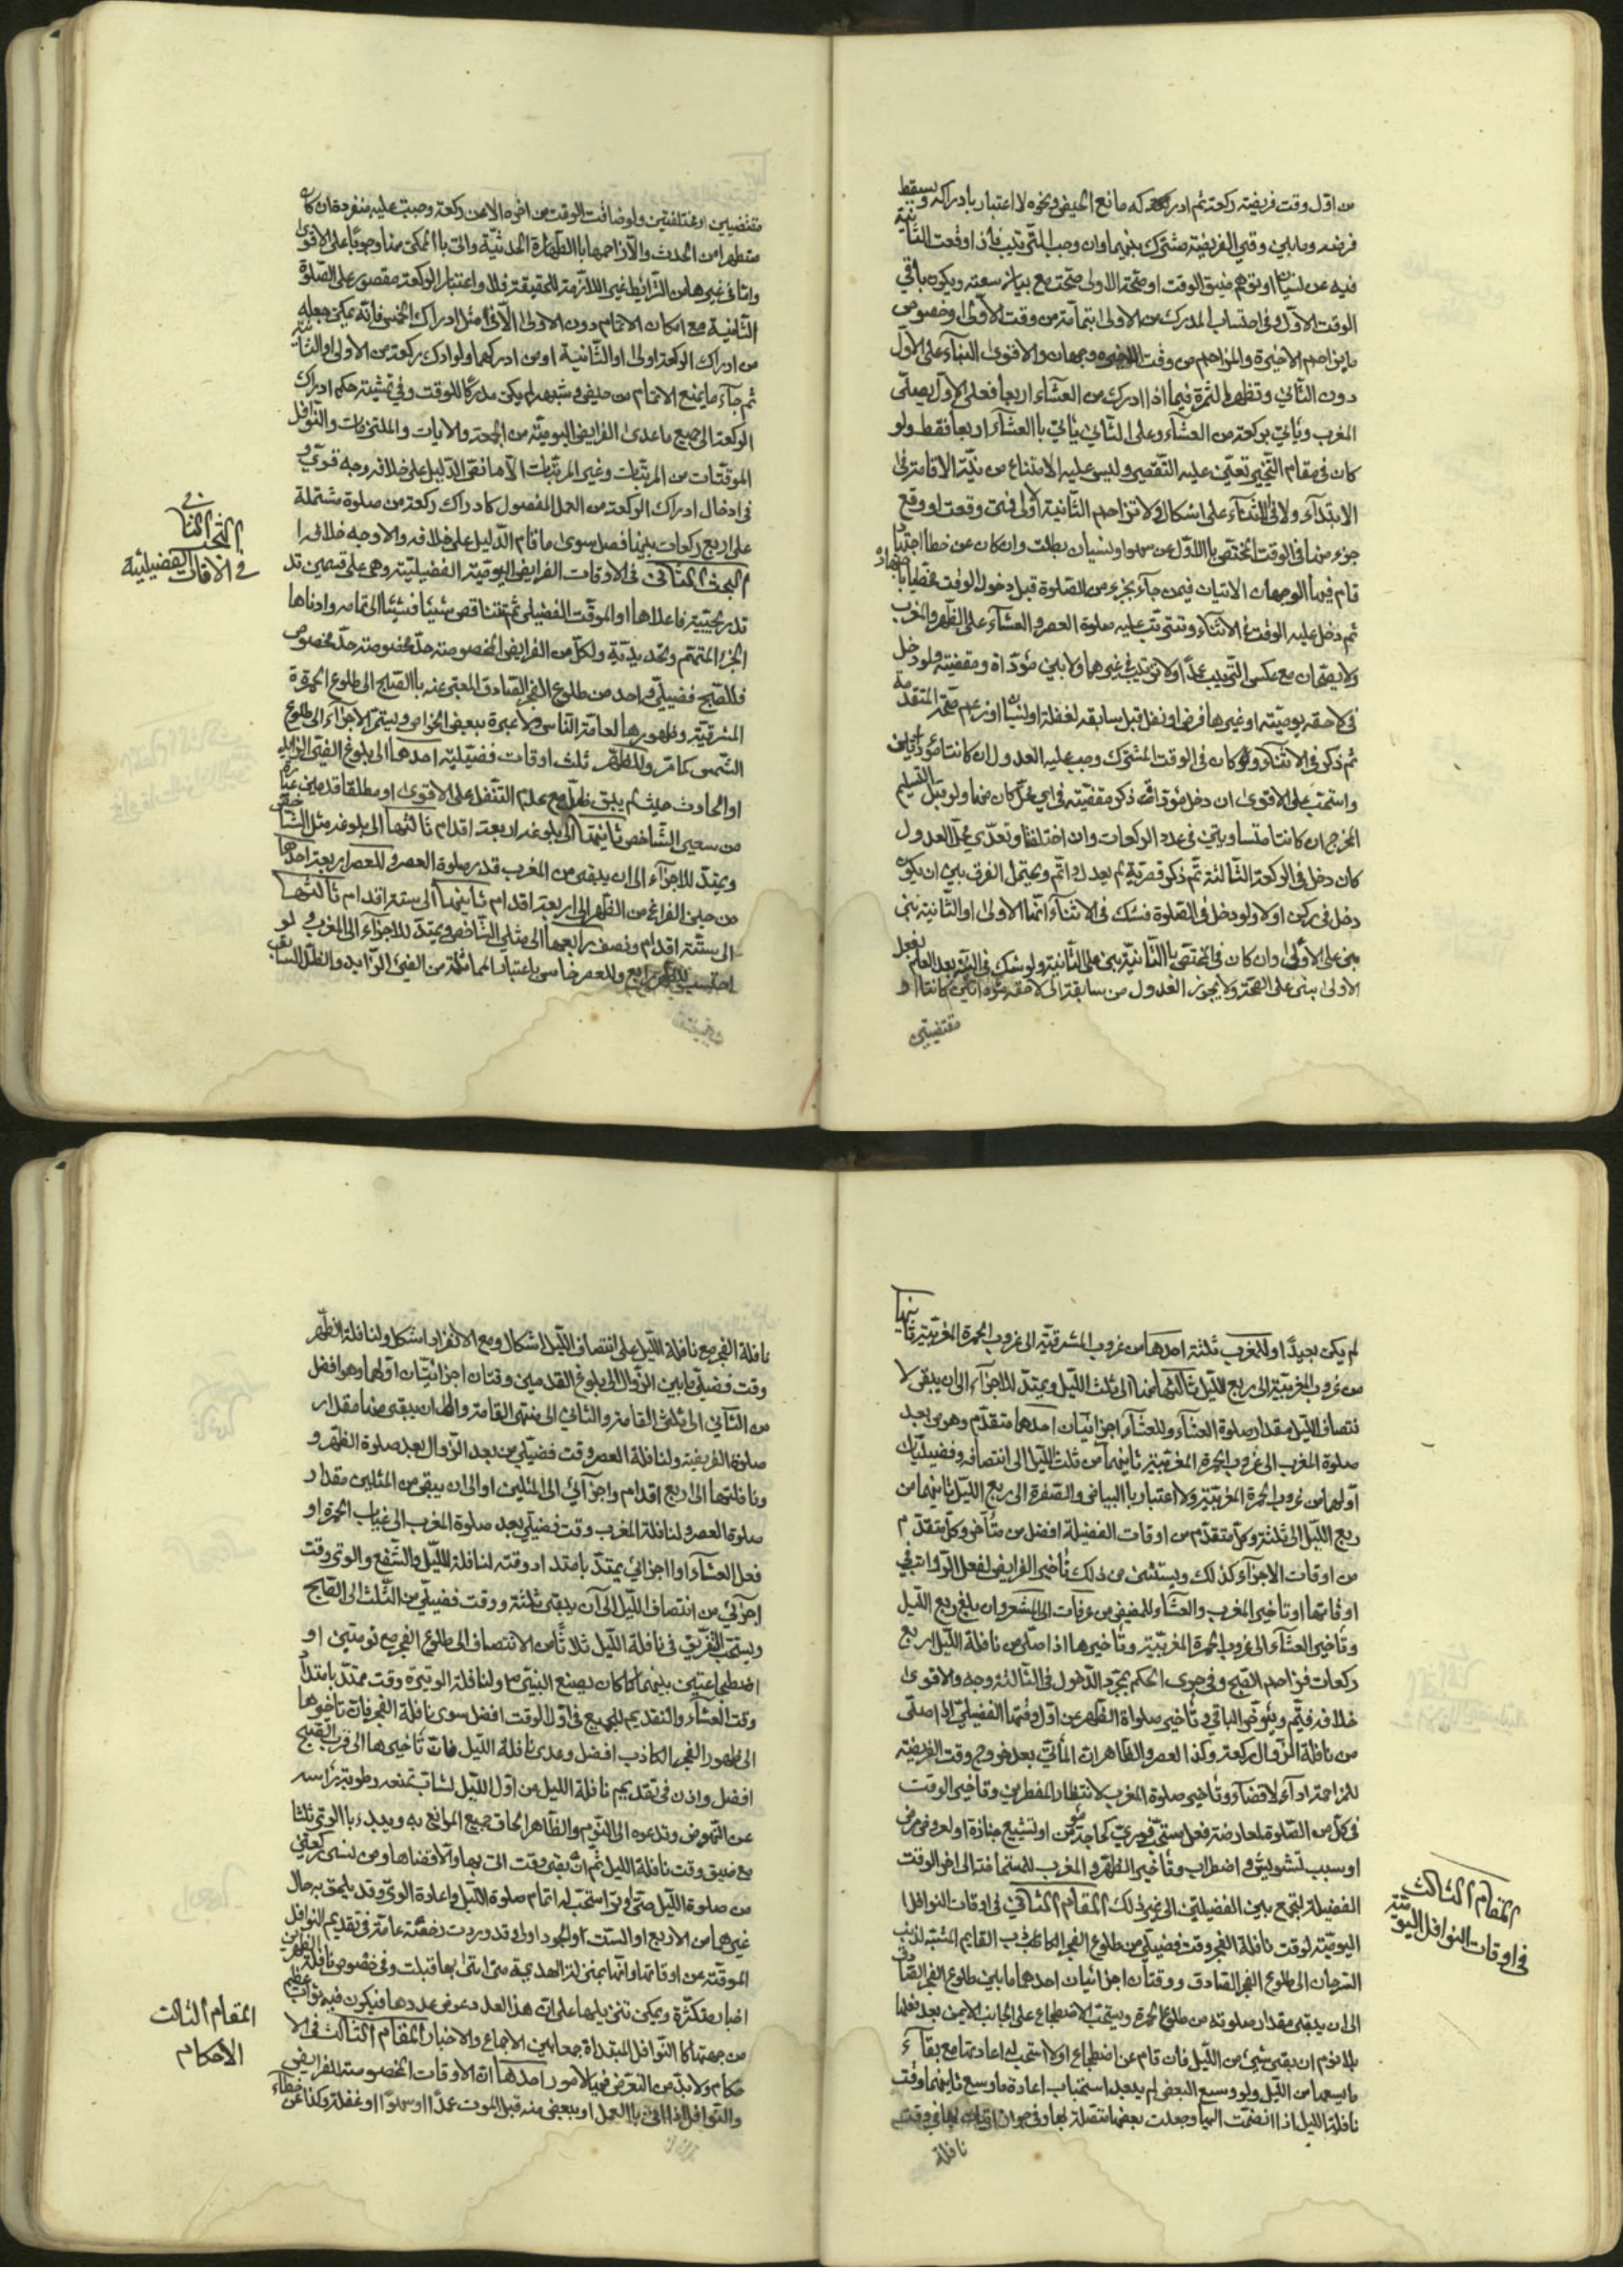 من اول وقت فريضته ركعة ثم ادركه مانع الحيض ونحوه لا اعتبار بادراكه ويسقط
فرضه وما بين وقتي الفريضتين مشترك بينهما وان وجب الترتيب فاذا وقعت الثانية
فيه عن نسيان او توهم ضيق الوقت او صحة الاولى صحت مع بيان سعته ويكون باقي
الوقت للاول وفي احتساب المدرك من الاولى بتمامه من وقت الاولى او خصوص
ما يزاحم الاخيرة والمزاحم من وقت الاخيره وجهان والاقوى البناء على الاول
دون الثاني وتظهر الثمرة فيما اذا ادرك من العشاء اربعا فعلى الاول يصلي
المغرب وياتي بركعة من العشاء وعلى الثاني ياتي باالعشاء اربعا فقط ولو
كان في مقام التخيير تعين عليه التقصير وليس عليه الامتناع من نية الاقامة في
الابتداء ولا في الاثناء على اشكال ولا تزاحم الثانية الاولى فمتى وقعت او وقع
جزء منها في الوقت المختص باالاول عن سهو او نسيان بطلت وان كان عن خطا اجتهاد
قام فيها الوجهان الاتيان فيمن جاء بجزء من الصلوة قبل دخول الوقت مخطيا باجتهاده
ثم دخل عليه الوقت في الاثناء وتترتب عليه صلوة العصر والعشاء على الظهر والمغرب
ولا يصحان مع عكس الترتيب عمدا ولا ترتيب في غيرهما ولا بين مؤداة ومقضية ولو دخل
في لاحقه يومية او غيرها فرض او نفل قبل سابقه لغفلة او لنسيان او زعم صحة المتقدمة
ثم ذكر في الاثناء ولو كان في الوقت المشترك وجب عليه العدول ان كانتا مؤداتين
واستحب على الاقوى ان دخل مؤداة ذكر مقضية في اي محل كان منها ولو قبل التسليم
المخرج ان كانتا متساويتين في عدد الركعات وان اختلفتا وتعدى محل العدول
كان دخل في الركعة الثالثة ثم ذكر قصرية لم يعدل واتم ويحتمل الفرق بين ان يكون
دخل في ركن او لا ولو دخل في الصلوة فشك في الاثناء انها الاولى او الثانية بني
بنى على الاولى وان كان في المختص باالثانية بنى على الثانية ولو شك في النية بعد العلم بفعل
الاولى بنى على الصحة ولا يجوز العدول من سابقة الى لاحقه مؤداتين كانتا او
مقتضيتين
مقتضيين او مختلفتين ولو ضاقت الوقت من اخره الا عن ركعة وجبت عليه منفردة ان كان
متطهرا من الحدث والا زاحمها باالطهارة الحدثية واتى باالممكن منها وجوبا على الاقوى
واما في غيرها من الشرائط غير اللازمة للحقيقة فلا واعتبار الركعة مقصور على الصلوة
الثانية مع امكان الاتمام دون الاولى الا في مثل ادراك الخمس فانه يمكن جعله
من ادراك الركعة اولى او الثانية او من ادركهما ولو ادرك ركعة من الاولى او الثانية
ثم جاء ما يمنع الاتمام من حيض وشبهه لم يكن مدركا للوقت وفي تمشية حكم ادراك
الركعة الى جميع ما عدى الفرايض اليومية من الجمعة والايات والملتزمات والنوافل
الموقتات من المرتبات وغير المرتبات الا ما نص الدليل على خلافه وجه قوي و
في ادخال ادراك الركعة من العمل المفصول كادراك ركعة من صلوة مشتملة
على اربع ركعات بينها فصل سوى ما قام الدليل على خلافه والاوجه خلافه ا
لبحث الثاني في الاوقات الفرايض اليومية الفضيلية وهي على قسمين قد
البحث الثاني
في الاوقات الفضيلية
تدريجيية فاعلاها او الموقت الفضيلي ثم تتناقص شيئا فشيئا الى تمامه وادناها
الجزء المتمم وتحديدية ولكل من الفرايض المخصوصة حد مخصوصة حد مخصوص
فللصبح فضيلي واحد من طلوع الفجر الصادق المعبر عنه باالصبح الى طلوع الحمرة
المشرقية وظهورها لعامة الناس ولا عبرة ببعض الخواص ويتم الاجزاء الى طلوع
الشمس كما مر وللظهر ثلث اوقات فضيلية احدها الى بلوغ الفيء الزايد
او الحادث حيث لم يبق ظل مع علم التنفل على الاقوى او مطلقا قدمين عبارة
من سبعي الشاخص ثانيها الى بلوغه اربعة اقدام ثالثها الى بلوغه مثل الشاخص
ويمتد للاجزاء الى ان يبقى من المغرب قدر صلوة العصر وللعصر اربعة احدها
من حين الفراغ من الظهر الى اربعة اقدام ثانيها الى ستة اقدام ثالثها
الى ستة اقدام ونصف رابعها الى مثلي الشاخص ويمتد للاجزاء الى المغرب ولو
احتسب للظهر رابع وللعصر خامس باعتبار المماثلة من الفيء الزايد والظل السابق
لم يكن بعيدا وللمغرب ثلثة احدها من غروب المشرقية الى غروب الحمرة المغربية ثانيها
من غروب المغربية الى ربع الليل ثالثها منها الى ثلث الليل ويمتد للاجزاء الى ان يبقى لا
نتصاف الليل مقدار صلوة العشاء وللعشاء اجزائيان احدهما متقدم وهو من بعد
صلوة المغرب الى غروب الحمرة المغربية ثانيهما من ثلث الليل الى انتصافه وفضيليان
اولهما من غروب الحمرة المغربية ولا اعتبار باالبياض والصفرة الى ربع الليل ثانيهما من
ربع الليل الى ثلثة وكل متقدم من اوقات الفضيلة افضل من متأخر وكل متقدم
من اوقات الاجزاء كذلك ويستثنى من ذلك تأخير الفرايض لفعل الرواتب في
اوقاتها او تاخير المغرب والعشاء للمفيض من عرفات الى المشعر وان بلغ ربع الليل
وتاخير العشاء الى غروب الحمرة المغربية وتأخيرها اذا صلى من نافلة الليل اربع
ركعات فزاحم الصبح وفي جرى الحكم بمجرد الدخول في الثالثة وجه والاقوى
خلافه فيتم ويعوض الباقي وتأخير صلواة الظهر عن اول وقتها الفضيلي الى اصلى
من نافلة الزوال ركعة وكذا العصر والظاهر ان المأتي بعد خروج وقت الفريضة
للمزاحمة اداء لا قضاء وتأخير صلوة المغرب لانتظار المفطرين وتأخير الوقت
في كل من الصلوة لمعارضة فعل مستحب فوري كحاجة مؤمن او تشييع جنازة او لعروض مرض
او سبب تشويش واضطراب وتأخير الظهر والمغرب للمستحاضة الى اخر الوقت
الفضيلة لتجمع بين الفضيلتين الى غير ذلك المقام الثاني في اوقات النوافل ا
المقام الثالث
في اوقات النوافل اليومية
اليومية لوقت نافلة الفجر وقت فضيلي من طلوع الفجر الكاذب القايم المشبه لذنب
السرحان الى طلوع الفجر الصادق ووقتان اجزائيان احدهما ما بين طلوع الفجر الصادق
الى ان يبقى مقدار صلوته من طلوع الحمرة ويستحب الاضطجاع على الجانب الايمن بعد فعلها
بلا نوم ان بقي شيء من الليل فان قام عن اضطجاع او لا استحب له اعادتها مع بقاء
ما يسعها من الليل ولو وسع البعض لم يبعد استحباب اعادة ما وسع ثانيهما وقت
نافلة الليل اذا انضمت اليها وجعلت بعضها متصلة بها وفي جواز اتيان بها في وقت
نافلة
نافلة الفجر مع نافلة الليل على انتصاف الليل اشكال ومع الانفراد اشكل ولنافلة الظهر
وقت فضيلي ما بين الزوال الى بلوغ القدمين وقتان اجزائيان اولهما وهو افضل
من الثاني الى ثلثي القامة والثاني الى منتهى القامة والى ان يبقى منها مقدار
صلوة الفريضة ولنافلة العصر وقت فضيلي من بعد الزوال بعد صلوة الظهر و
ونافلتها الى اربع اقدام واجزائي الى المثلين او الى ان يبقى من المثلين مقدار
صلوة العصر ولنافلة المغرب وقت فضيلي بعد صلوة المغرب الى غياب الحمرة او
فعل العشاء او اجزائي يمتد بامتداد وقته لنافلة الليل والشفع والوتر وقت
اجزئي من انتصاف الليل الى ان يبقى ثلثة ووقت فضيلي من الثلث الى الصبح
ويستحب التفريق في نافلة الليل ثلاثا من الانتصاف الى طلوع الفجر مع نومتين او
اضطجاعتين بينهما كما كان يصنع النبي ص ولنافلة الوتيرة وقت ممتد بامتداد
وقت العشاء والتقديم للجميع في اول الوقت افضل سوى نافلة الفجر فان تأخرها
الى ظهور الفجر الكاذب افضل وعدى نافلة الليل فان تأخيرها الى قرب الصبح
افضل واذن في تقديم نافلة الليل من اول الليل لشاب تمنعه رطوبة رأسه
عن النهوض وتدعوه الى النوم والظاهر الحاق جميع الموانع به ويبدء باالوتر ثلثا
مع ضيق وقت نافلة الليل ثم ان بقى وقت اتى بها والا قضاها ومن نسي ركعتين
من صلوة الليل حتى اوتر استحب له اتمام صلوة الليل واعادة الوتر وقد يلحق به حال
غيرها من الاربع او الست او الجود اولى وقد وردت رخصة عامة في تقديم النوافل
الموقتة عن اوقاتها وانها بمنزلة الهدية متى اتى بها قبلت وفي خصوص نافلة الظهرين
اخبار متكثرة ويمكن تنزيلها على ان هذا العدد عوض عددها فيكون فيه ثواب عظيم
من جهتها كا النوافل المبتداة جمعا بين الاجماع والاخبار المقام الثالث في الا
المقام الثالث
الاحكام
حكام ولا بد من التعرض فيها لامور احدها ان الاوقات المخصوصة للفرايض
والنوافل اذا اتى باالعمل او ببعض منه قبل الموت عمدا او سهوا او غفلة وكذا عن خطاء